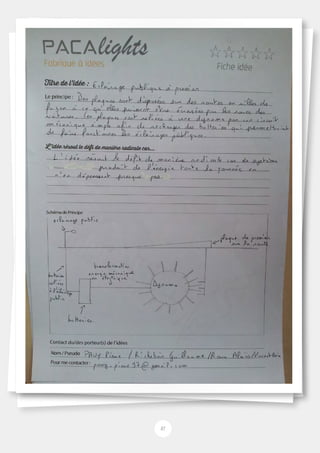 PACAlights
Fabrique à idées
Fiche idée
Titre de l'idée : Eclairage publique à pression
Le principe : Des plaques sont disposées sur des routes ou villes de
façon à ce qu'elles puissent être écrasées par les roues des
voitures. Les plaques sont reliées à une dynamo par un circuit
mécanique simple afin de recharger des batteries qui permettront
de faire fonctionner des éclairages publiques.
L'idée résout le défi de manière radicale car...
L'idée résout le défit de manière radicale car ce système
produit de l'énergie toute la journée en
n'en dépensant presque pas.
Schéma de Principe
éclairage public
plaque de pression
sur la route
transformation
énergie mécanique
en électrique
Dynamo
batteries
reliées
à l'éclairage
public
batteries
Contact du/des porteur(s) de l'idées
Nom / Pseudo : Pierre / Guillaume /
Pour me contacter :
47